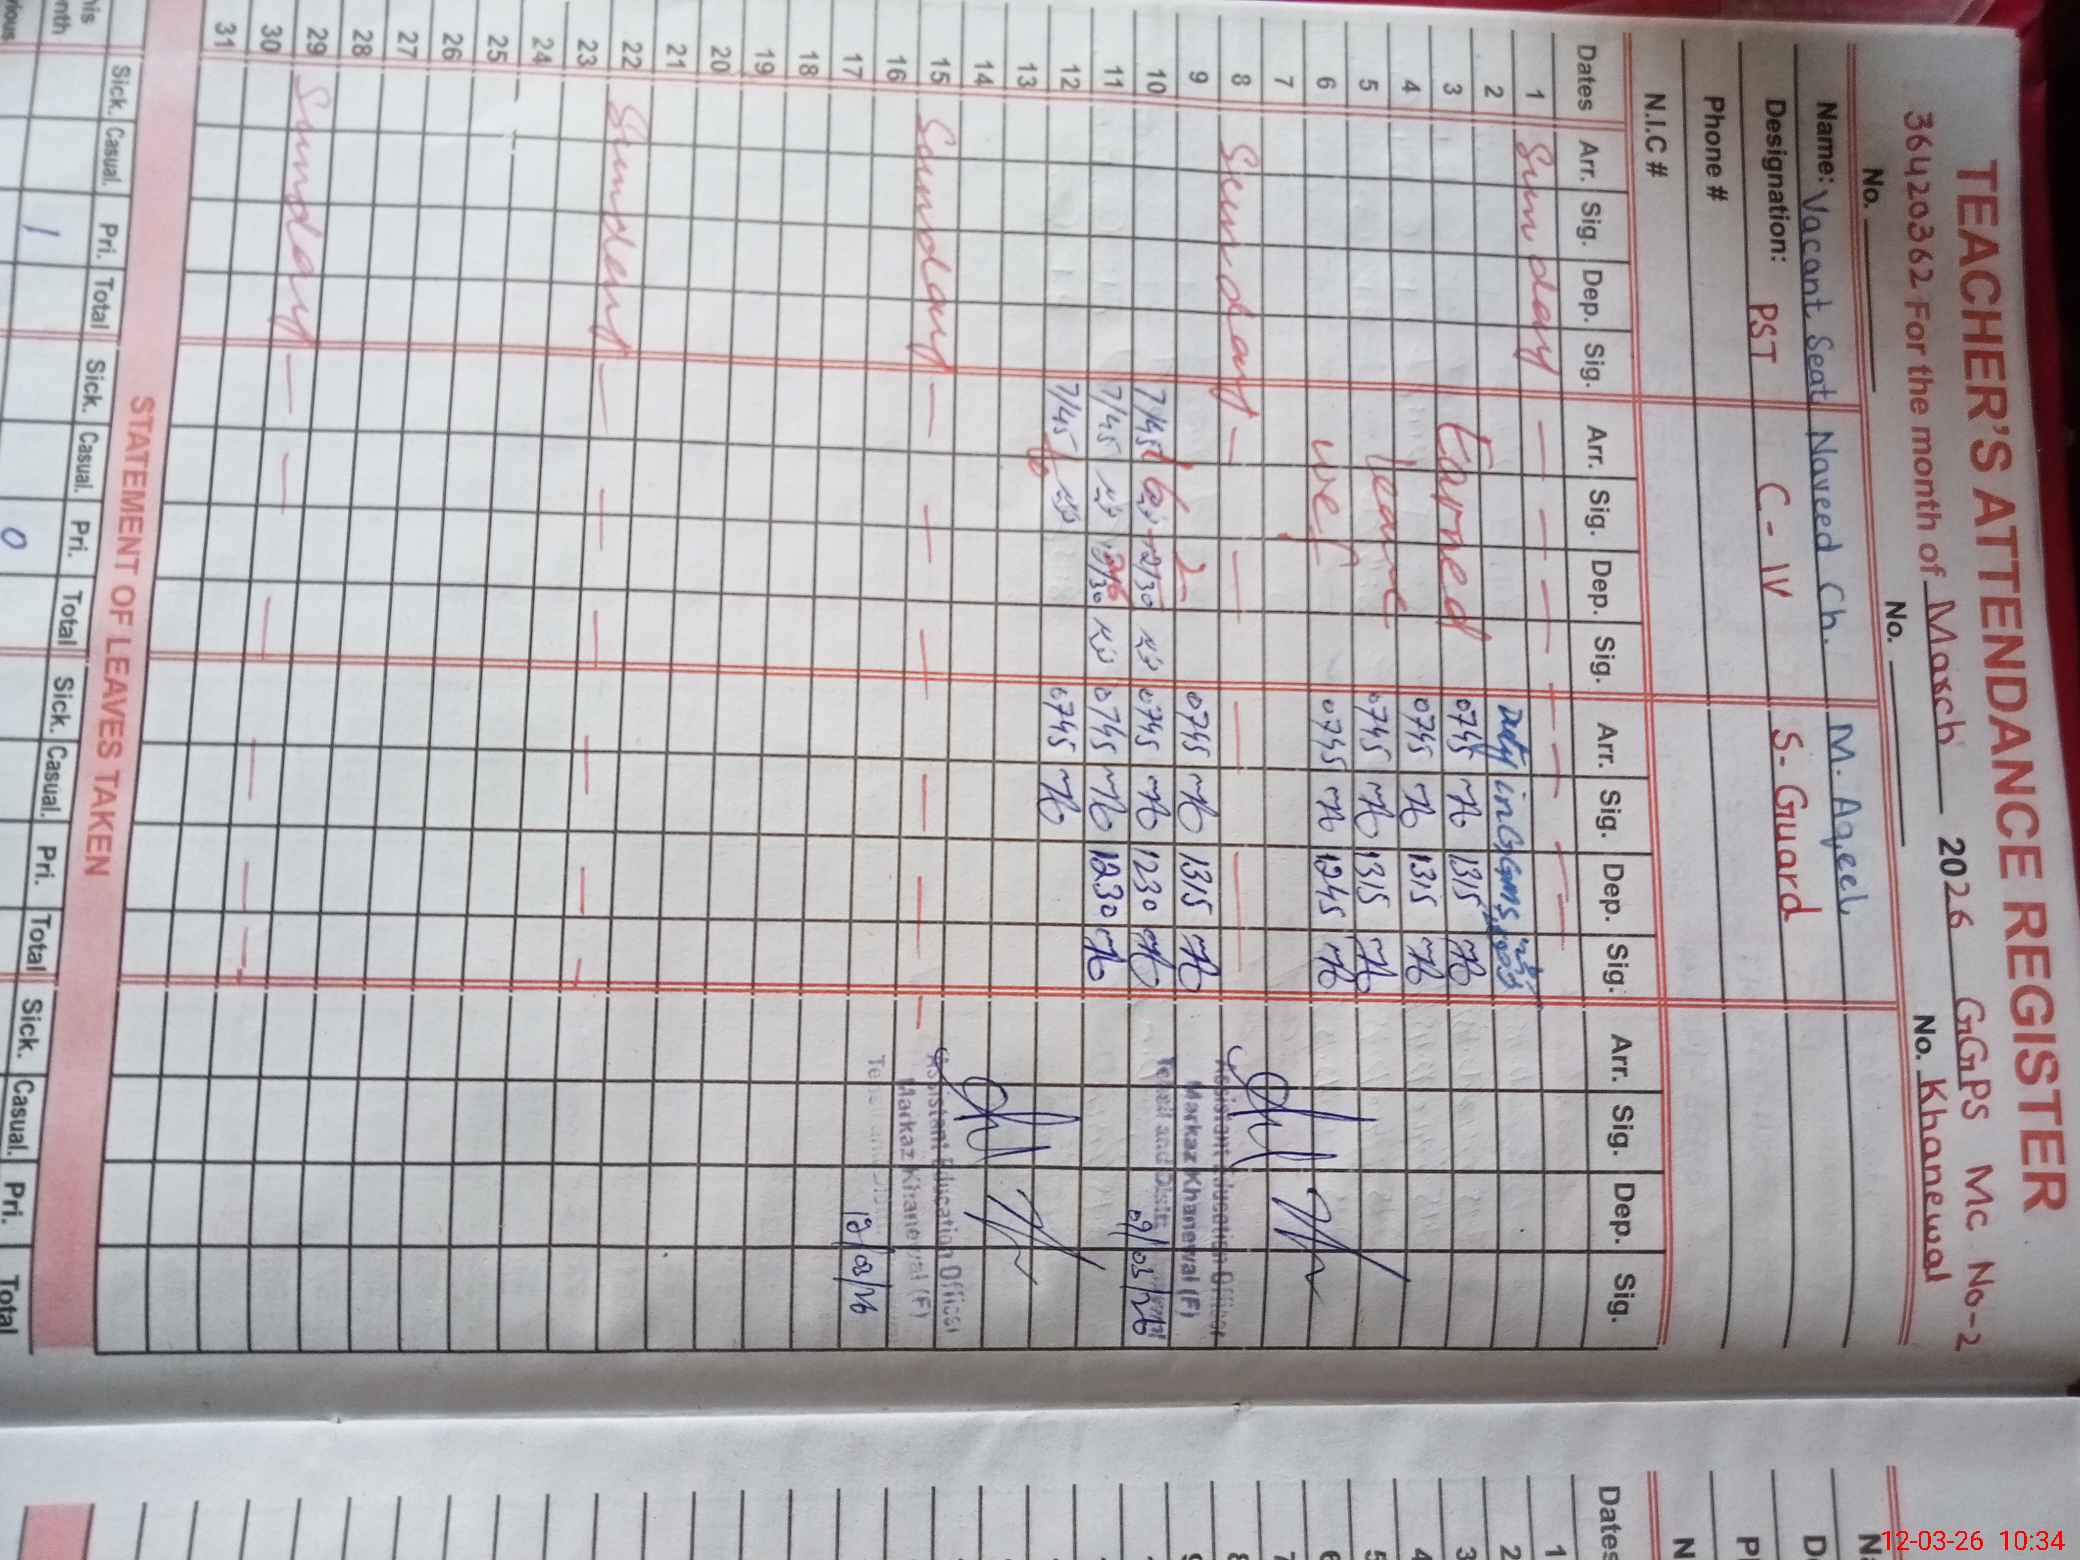 TEACHER'S ATTENDANCE REGISTER
36420362 For the month of March 2026 GGPS MC No-2
No. No. No. Khanewal
Name: Vacant Seat Naveed Ch. M. Aqeel
Designation: PST C-IV S-Guard
Phone #
N.I.C #
Dates Arr. Sig. Dep. Sig. Arr. Sig. Dep. Sig. Arr. Sig. Dep. Sig. Arr. Sig. Dep. Sig.
1 Sunday — — — — — — —
2 Duty in
3 Earned 0745 1315
4 0745 1315
5 leave 0745 1315
6 wef 0745 1245
7
8 Sunday — — — — —
9 0745 1315
10 7/45 12/30 0745 1230
11 7/45 12/30 0745 1230
12 7/45 0745
13
14
15 Sunday — — — — — — —
16
17
18
19
20
21
22 Sunday — — — — — —
23
24
25
26
27
28
29 Sunday — — — — — —
30
31
Assistant Education Officer
Markaz Khanewal (F)
09/03/26
Assistant Education Officer
Markaz Khanewal (F)
12/03/26
STATEMENT OF LEAVES TAKEN
Sick. Casual. Pri. Total Sick. Casual. Pri. Total Sick. Casual. Pri. Total Sick. Casual. Pri. Total
his
nth 1 0
vious
Dates
1
2
3
4
5
6
8
9
12-03-26 10:34